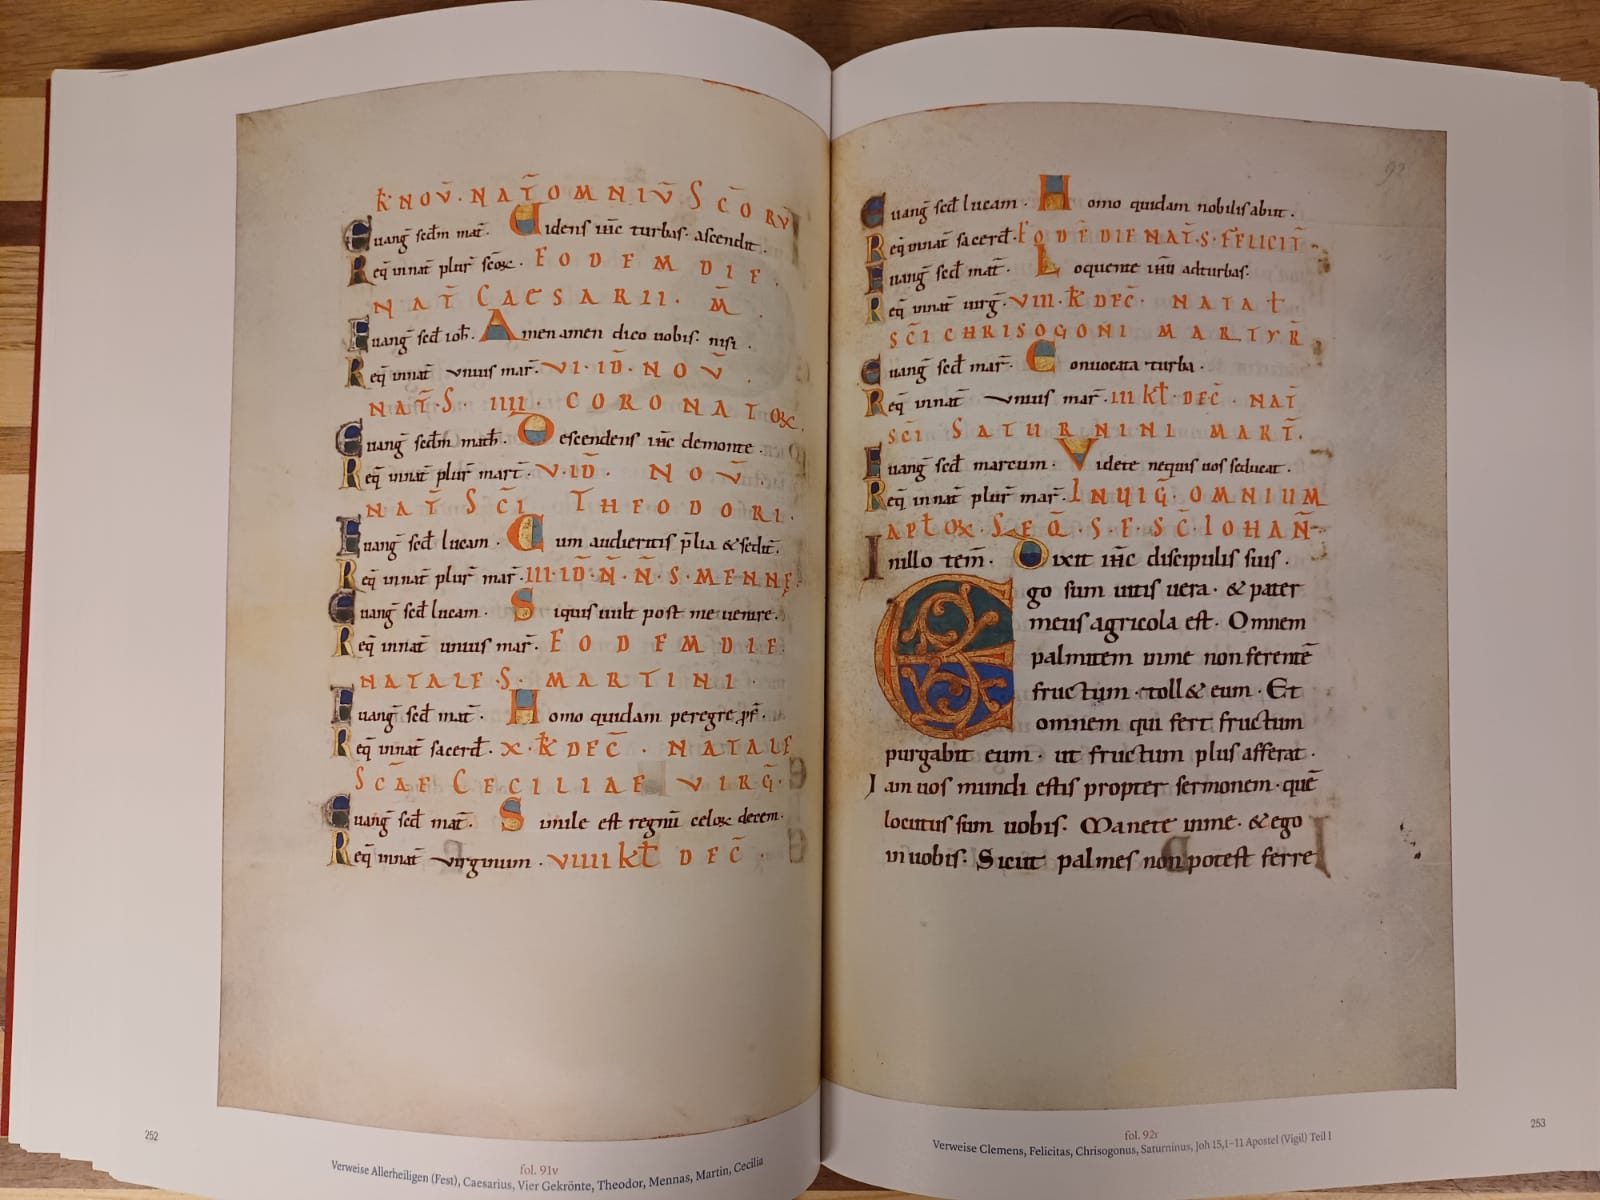 k̅ NOV̅. NAT̅ OMNIV̅ S C̅O RV̅
Euang̅ sed̅m mat̅. Uidens iħc turbas. ascendit.
Req̅ in nat̅ plur̅ sc̅oꝝ. EODEM DIE.
NAT̅ CAESARII. M̅.
Euang̅ sed̅ ioh̅. Amen amen dico uobis. nisi.
Req̅ in nat̅ vnius mar̅. VI. ID̅. NOV̅.
NAT̅. S. IIII. CORONATOꝝ.
Euang̅ sed̅m math̅. Descendens iħc demonte.
Req̅ in nat̅ plur̅ mart̅. V. ID̅. NOV̅.
NAT̅ SC̅I THEODORI.
Euang̅ sed̅ lucam. Cum audieritis p̅lia & sedit̅.
Req̅ in nat̅ plur̅ mar̅. III. ID̅. N̅. N̅. S. MENNE.
Euang̅ sed̅ lucam. Siquis uult post me uenire.
Req̅ in nat̅ unius mar̅. EODEM DIE
NATALE S. MARTINI.
Euang̅ sed̅ mat̅. Homo quidam peregre ꝓf̅.
Req̅ in nat̅ sacerd̅. X. k̅ DEC̅. NATALE
SC̅AE CECILIAE VIRG̅.
Euang̅ sed̅ mat̅. Simile est regnu̅ celoꝝ decem.
Req̅ in nat̅ virginum. VIIII kł DEC̅.
252
fol. 91v
Verweise Allerheiligen (Fest), Caesarius, Vier Gekrönte, Theodor, Mennas, Martin, Cecilia
92
Euang̅ sed̅ lucam. Homo quidam nobilis abiit.
Req̅ in nat̅ sacerd̅. EODE̅ DIE NAT̅. S. FELICIT̅.
Euang̅ sed̅ mat̅. Loquente iħu adturbas.
Req̅ in nat̅ uirg̅. VIII. k̅ DEC̅. NATAŁ
SC̅I CHRISOGONI MARTYR̅
Euang̅ sed̅ mar̅. Conuocata turba.
Req̅ in nat̅ vnius mar̅. III kł. DEC̅. NAT̅
SC̅I SATURNINI MART̅.
Euang̅ sed̅ marcum. Videte nequis uos seducat.
Req̅ in nat̅ plur̅ mar̅. IN UIG̅. OMNIUM
APŁOꝝ. S. E. Q̅. S. E. SC̅. IOHAN̅.
In illo tem̅. Dixit iħc discipulis suis.
Ego sum uitis uera. & pater
meus agricola est. Omnem
palmitem inme non ferente̅
fructum. toll& eum. Et
omnem qui fert fructum
purgabit eum. ut fructum plus afferat.
Iam uos mundi estis propter sermonem. que̅
locutus sum uobis. Manete inme. & ego
in uobis. Sicut palmes non potest ferre
fol. 92r
Verweise Clemens, Felicitas, Chrisogonus, Saturninus, Joh 15,1–11 Apostel (Vigil) Teil I
253